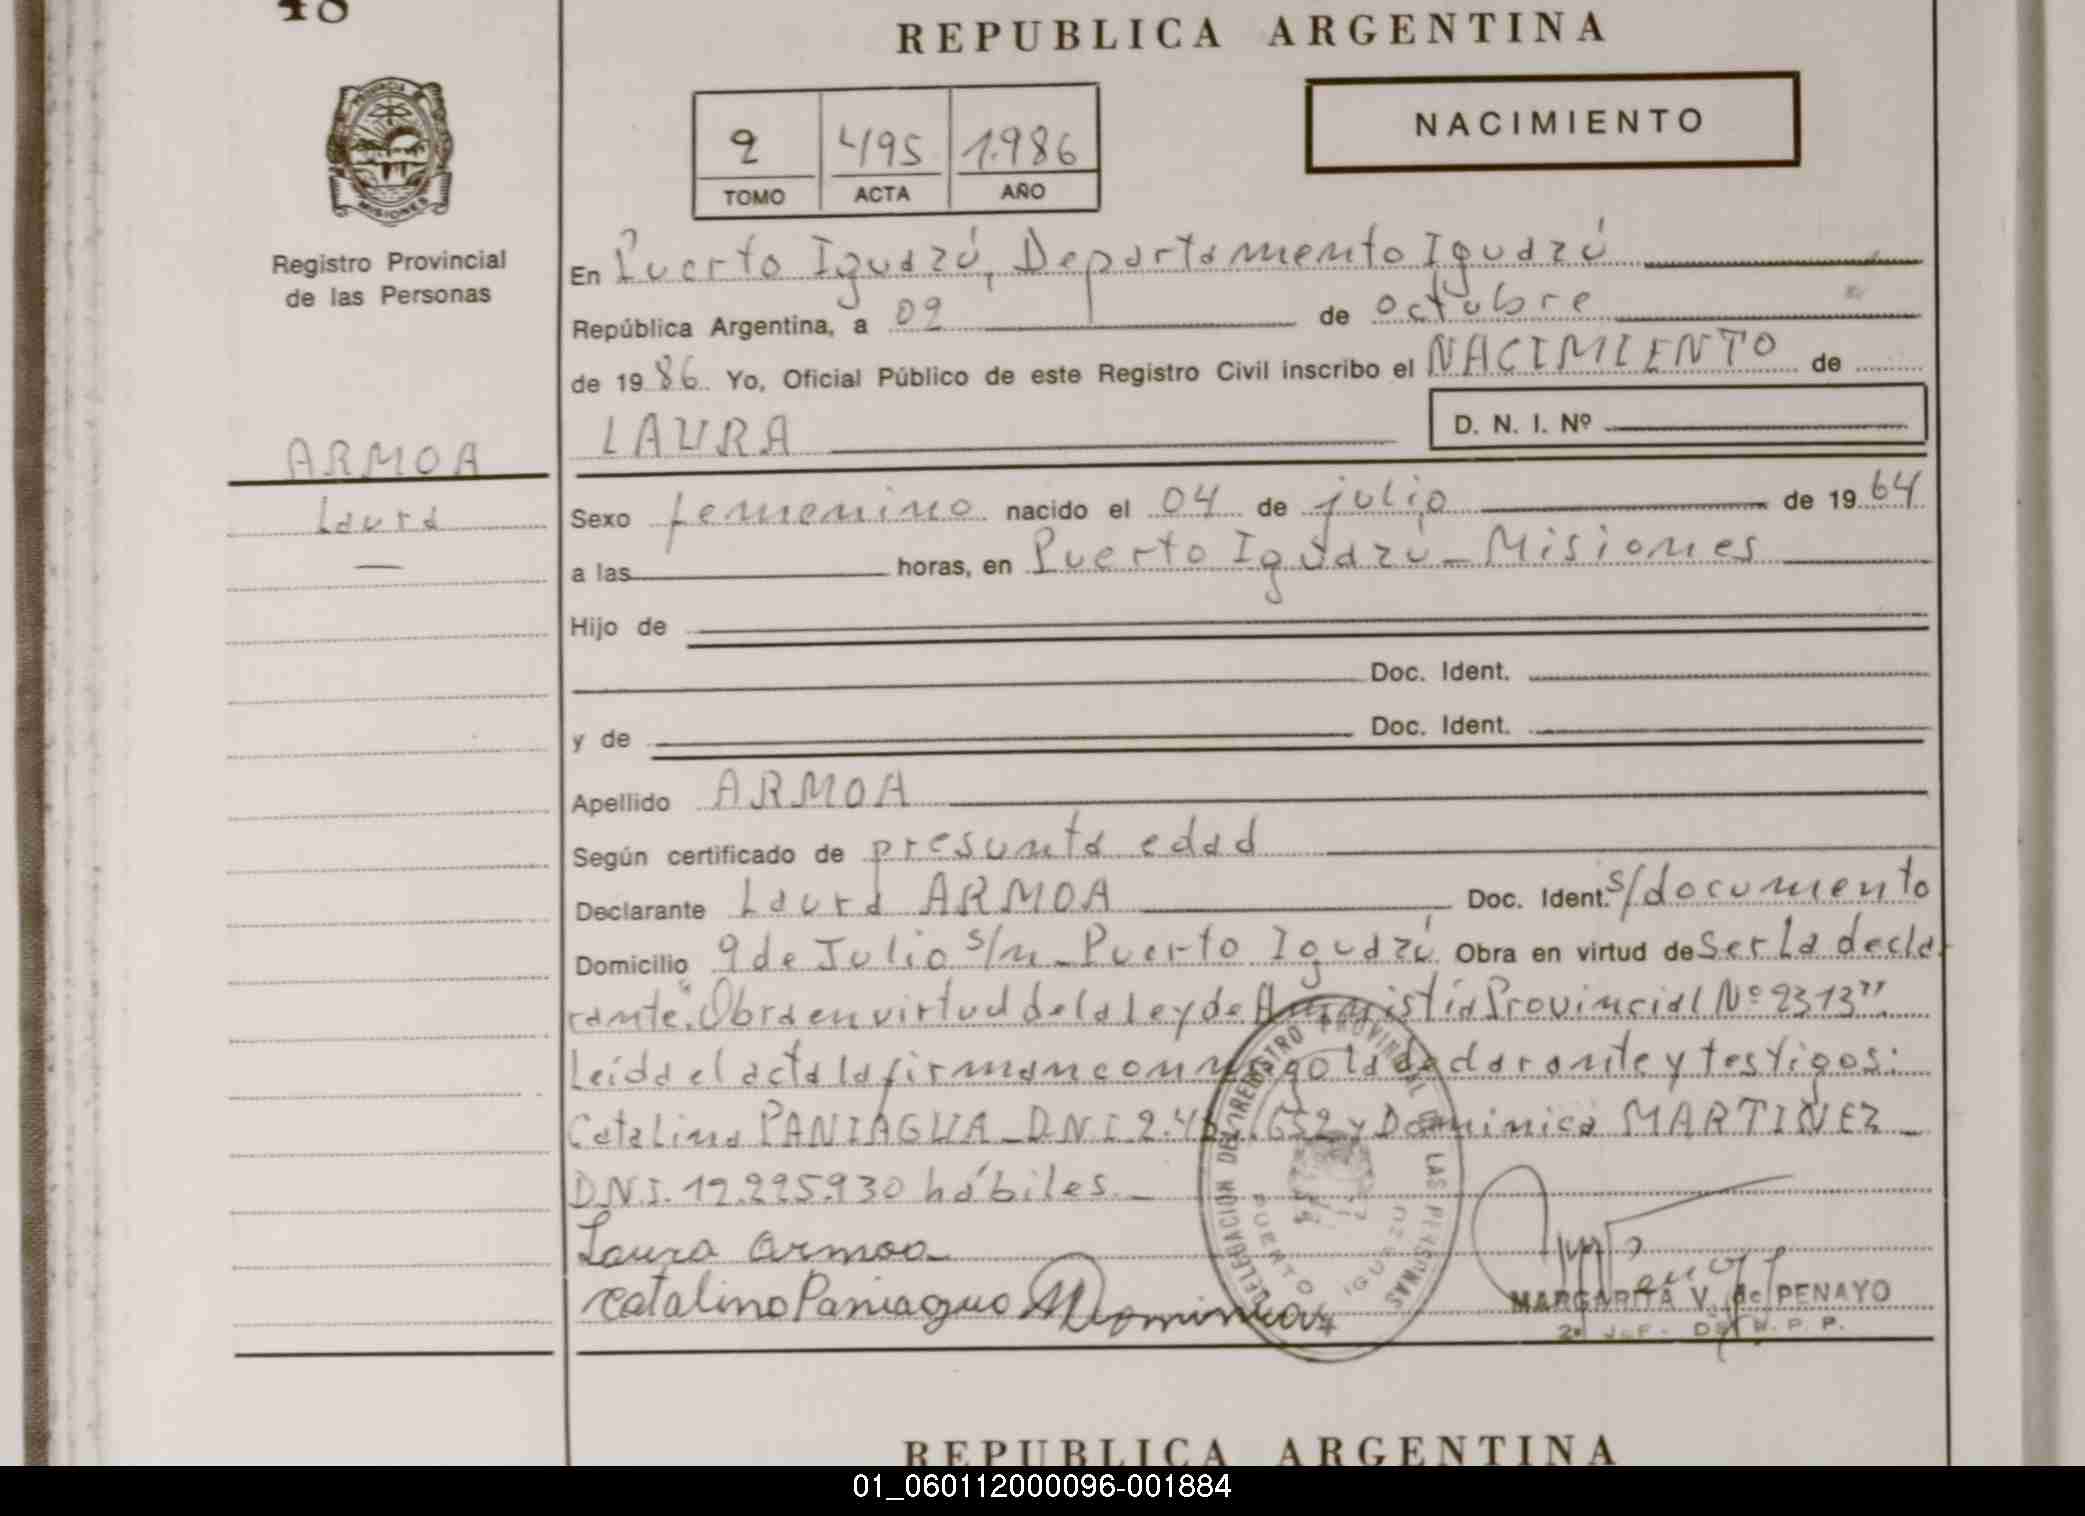 48
REPUBLICA ARGENTINA
PROVINCIA
MISIONES
NACIMIENTO
2 495 1.986
TOMO ACTA AÑO
Registro Provincial
de las Personas
En Puerto Iguazú, Departamento Iguazú
República Argentina, a 02 de octubre
de 1986. Yo, Oficial Público de este Registro Civil inscribo el NACIMIENTO de
LAURA D. N. I. Nº
ARMOA
Laura
Sexo femenino nacido el 04 de julio de 1964
a las horas, en Puerto Iguazú - Misiones
Hijo de
Doc. Ident.
y de Doc. Ident.
Apellido ARMOA
Según certificado de presunta edad
Declarante Laura ARMOA Doc. Ident. s/documento
Domicilio 9 de Julio s/n - Puerto Iguazú Obra en virtud de Ser La decla
rante. "Obra en virtud de la Ley de Amnistía Provincial Nº 2313"
Leída el acta la firman conmigo la declarante y testigos:
Catalina PANIAGUA - D.N.I. y Dominica MARTINEZ -
D.N.I. 12.225.930 hábiles. -
Laura Armoa
Catalino Paniaguo Dominica
DELEGACION DEL REGISTRO PROVINCIAL DE LAS PERSONAS
PUERTO IGUAZU
MARGARITA V. de PENAYO
REPUBLICA ARGENTINA
01_060112000096-001884